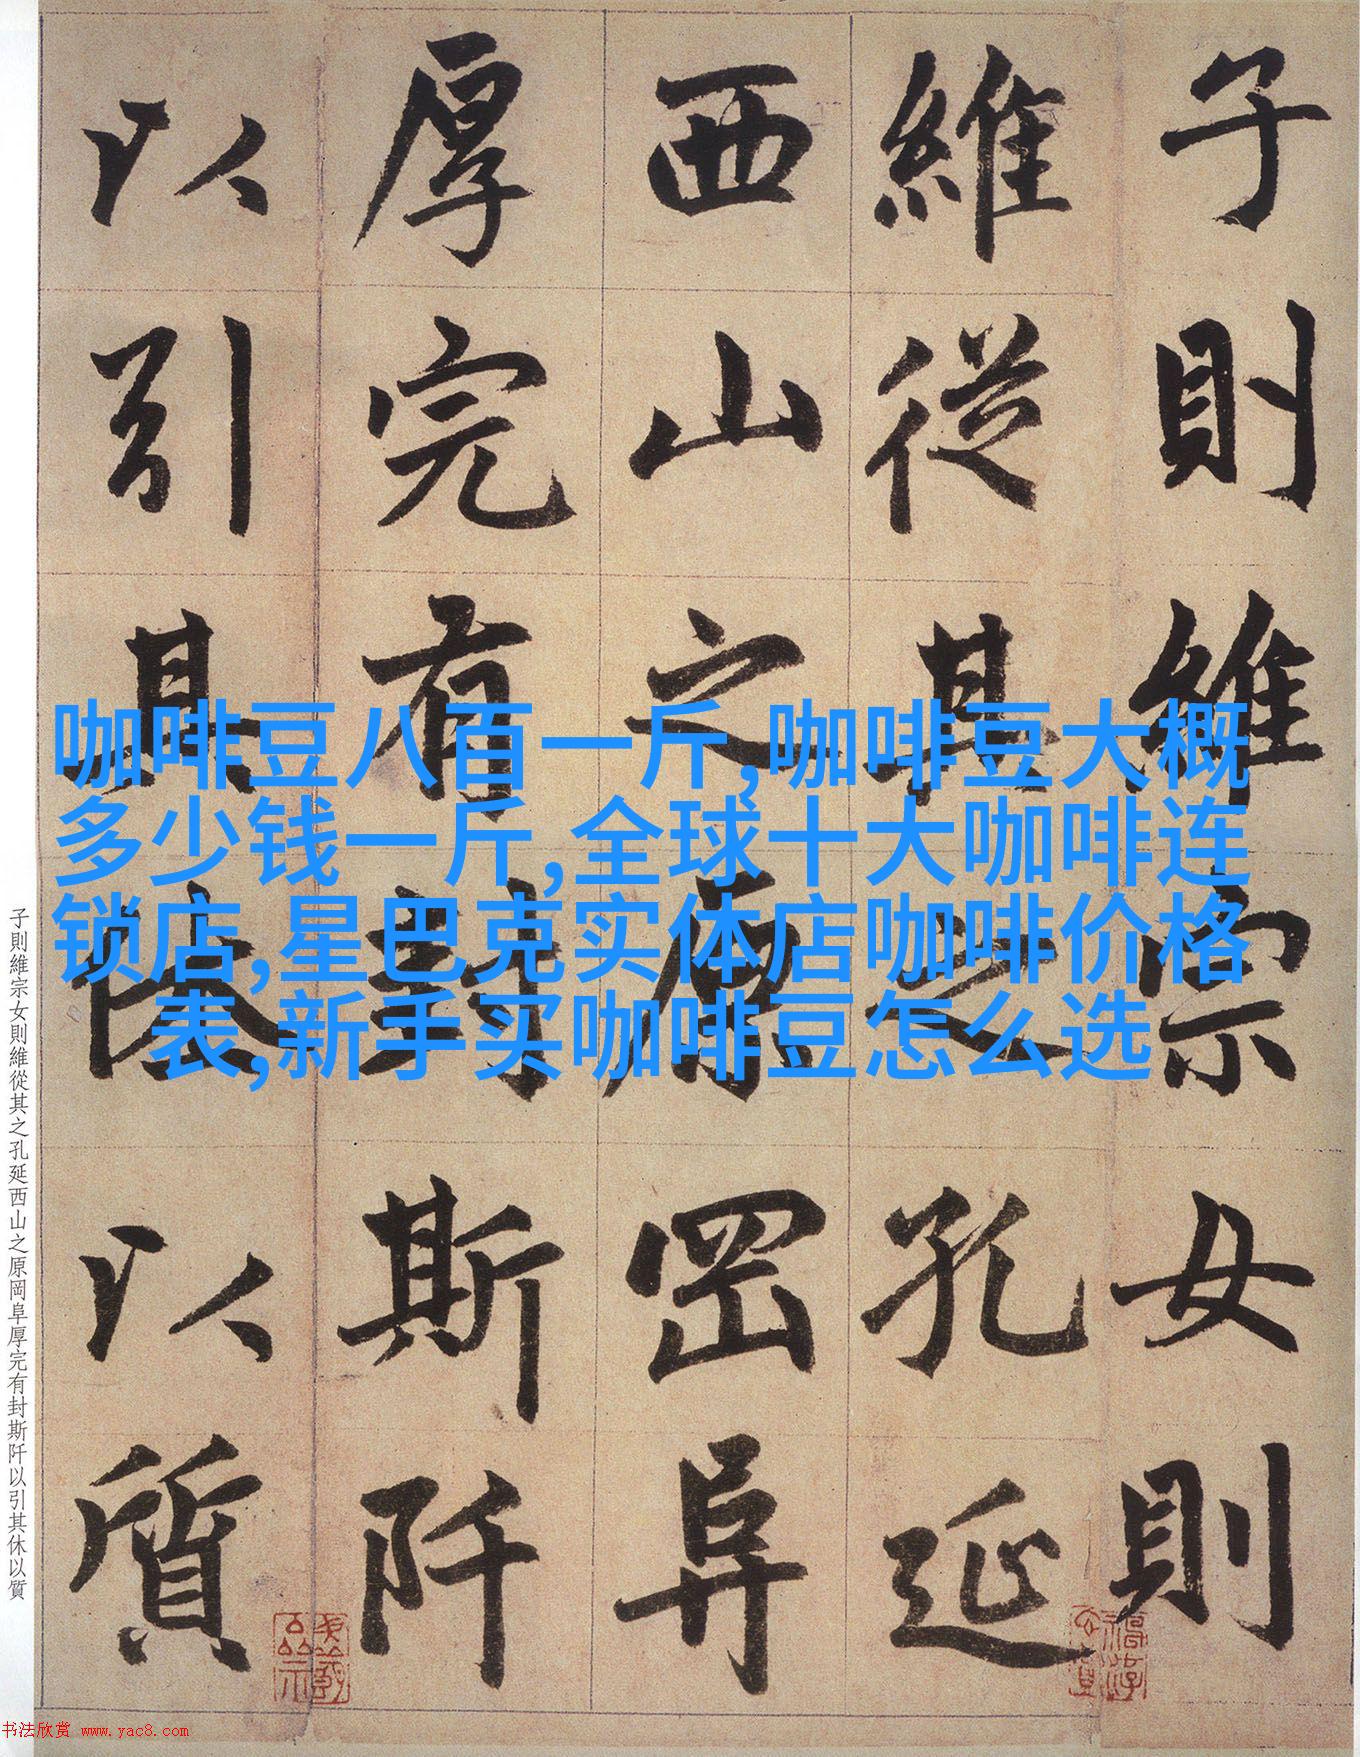 子則維宗女則
維從其之孔延
西山之原岡阜
厚完有封斯阡
以引其休以質
咖啡豆八百一斤,咖啡豆大概
多少钱一斤,全球十大咖啡连
锁店,星巴克实体店咖啡价格
表,新手买咖啡豆怎么选
子則維宗女則維從其之孔延西山之原岡阜厚完有封斯阡以引其休以質
书法欣赏 www.yac8.com